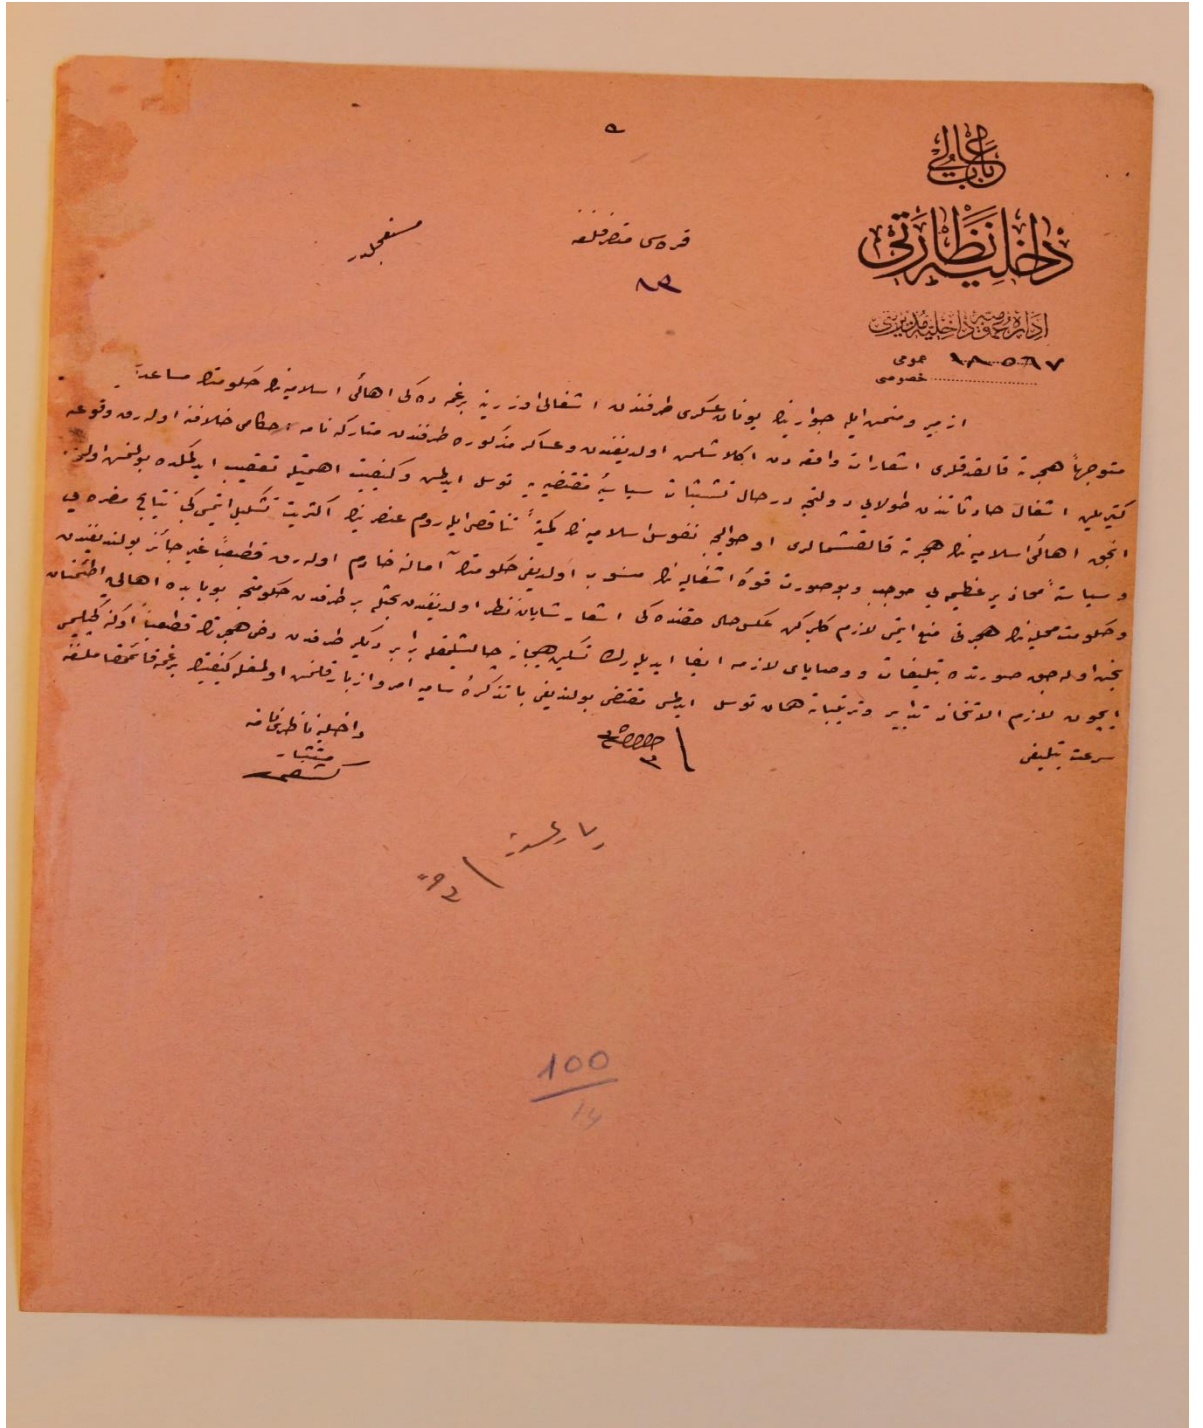 باب عالی
داخلیه نظارتی
اداره عمومیه داخلیه مدیریتی
عمومی ١٨٥٦٧
خصوصی
٥
قره‌سی متصرفلغنه
مستعجلدر
٨٩
ازمیر و منضمن ایله جوارینك یونان عسكری طرفندن اشغالی اوزرینه برغمه ده كی اهالئ اسلامیه نك حكومتك مساعد
متوجهاً هجرته قالقدقلری اشعارات واقعه دن اكلاشلمش اولدیغندن و عساكر مذكوره طرفندن متاركه نامه احكامی خلافنه اوله رق وقوعه
كتیریلن اشغال حادثاتندن طولایی دولتجه درحال تشبثات سیاسیۀ مقتضیه یه توسل ایدلمش و كیفیت اهمیتله تعقیب ایدلمكده بولنمش اولمغله
انجق اهالئ اسلامیه نك هجرته قالقشمالری او حوالیجه نفوس اسلامیه نك كمیةً تناقصی ایله روم عنصرینك اكثریت تشكیل ایتمسی كبی نتایج مضره یی
و سیاسةً محاذیر عظیمه یی موجب و بوصورت قوۀ اشغالیه نك منسوب اولدیغی حكومتك آمالنه خادم اوله رق قطعیاً غیر جائز بولندیغندن
و حكومت محلیه نك هجرتی منع ایتمسی لازم كلیركن عكس حال حقنده كی اشعار شایان نظر اولدیغندن بحثله بر طرفدن حكومتجه بوبابده اهالی یی اطمئنان
بخش اوله جق صورتده تبلیغات و وصایای لازمه ایفا ایدیله رك تسكین هیجانه چالیشلمغله برابر دیگر طرفدن دخی هجرتك قطعیاً اوكنه كچیلمسی
ایچون لازم الاتخاذ تدابیر و ترتیباته همان توسل ایدلمسی مقتضی بولندیغی با تذكرۀ سامیه امر و ازبار قلنمش اولمغله كیفیتك برغمه قائمقاملغنه
سرعت تبلیغی
داخلیه ناظری نامنه
مستشار
100
14